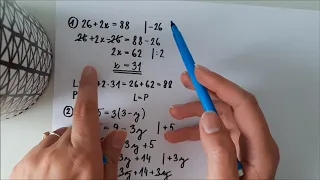 ① 26+2x = 88 |-26
26+2x-26 = 88-26
2x = 62 |:2
x = 31
L +2·31=26+62=88
L=P
② 5 = 3(3-y)
= 9-3y |+5
3y+5
3y+14 |+3y
3y+14+3y